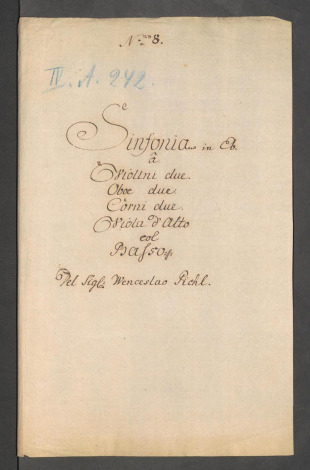 N:ro 8.
IV. A. 242.
Sinfonia in Eb.
â
Violini due.
Oboe due.
Corni due.
Viola d'Alto
col
Basso.
Del Sigl: Wenceslao Pichl.